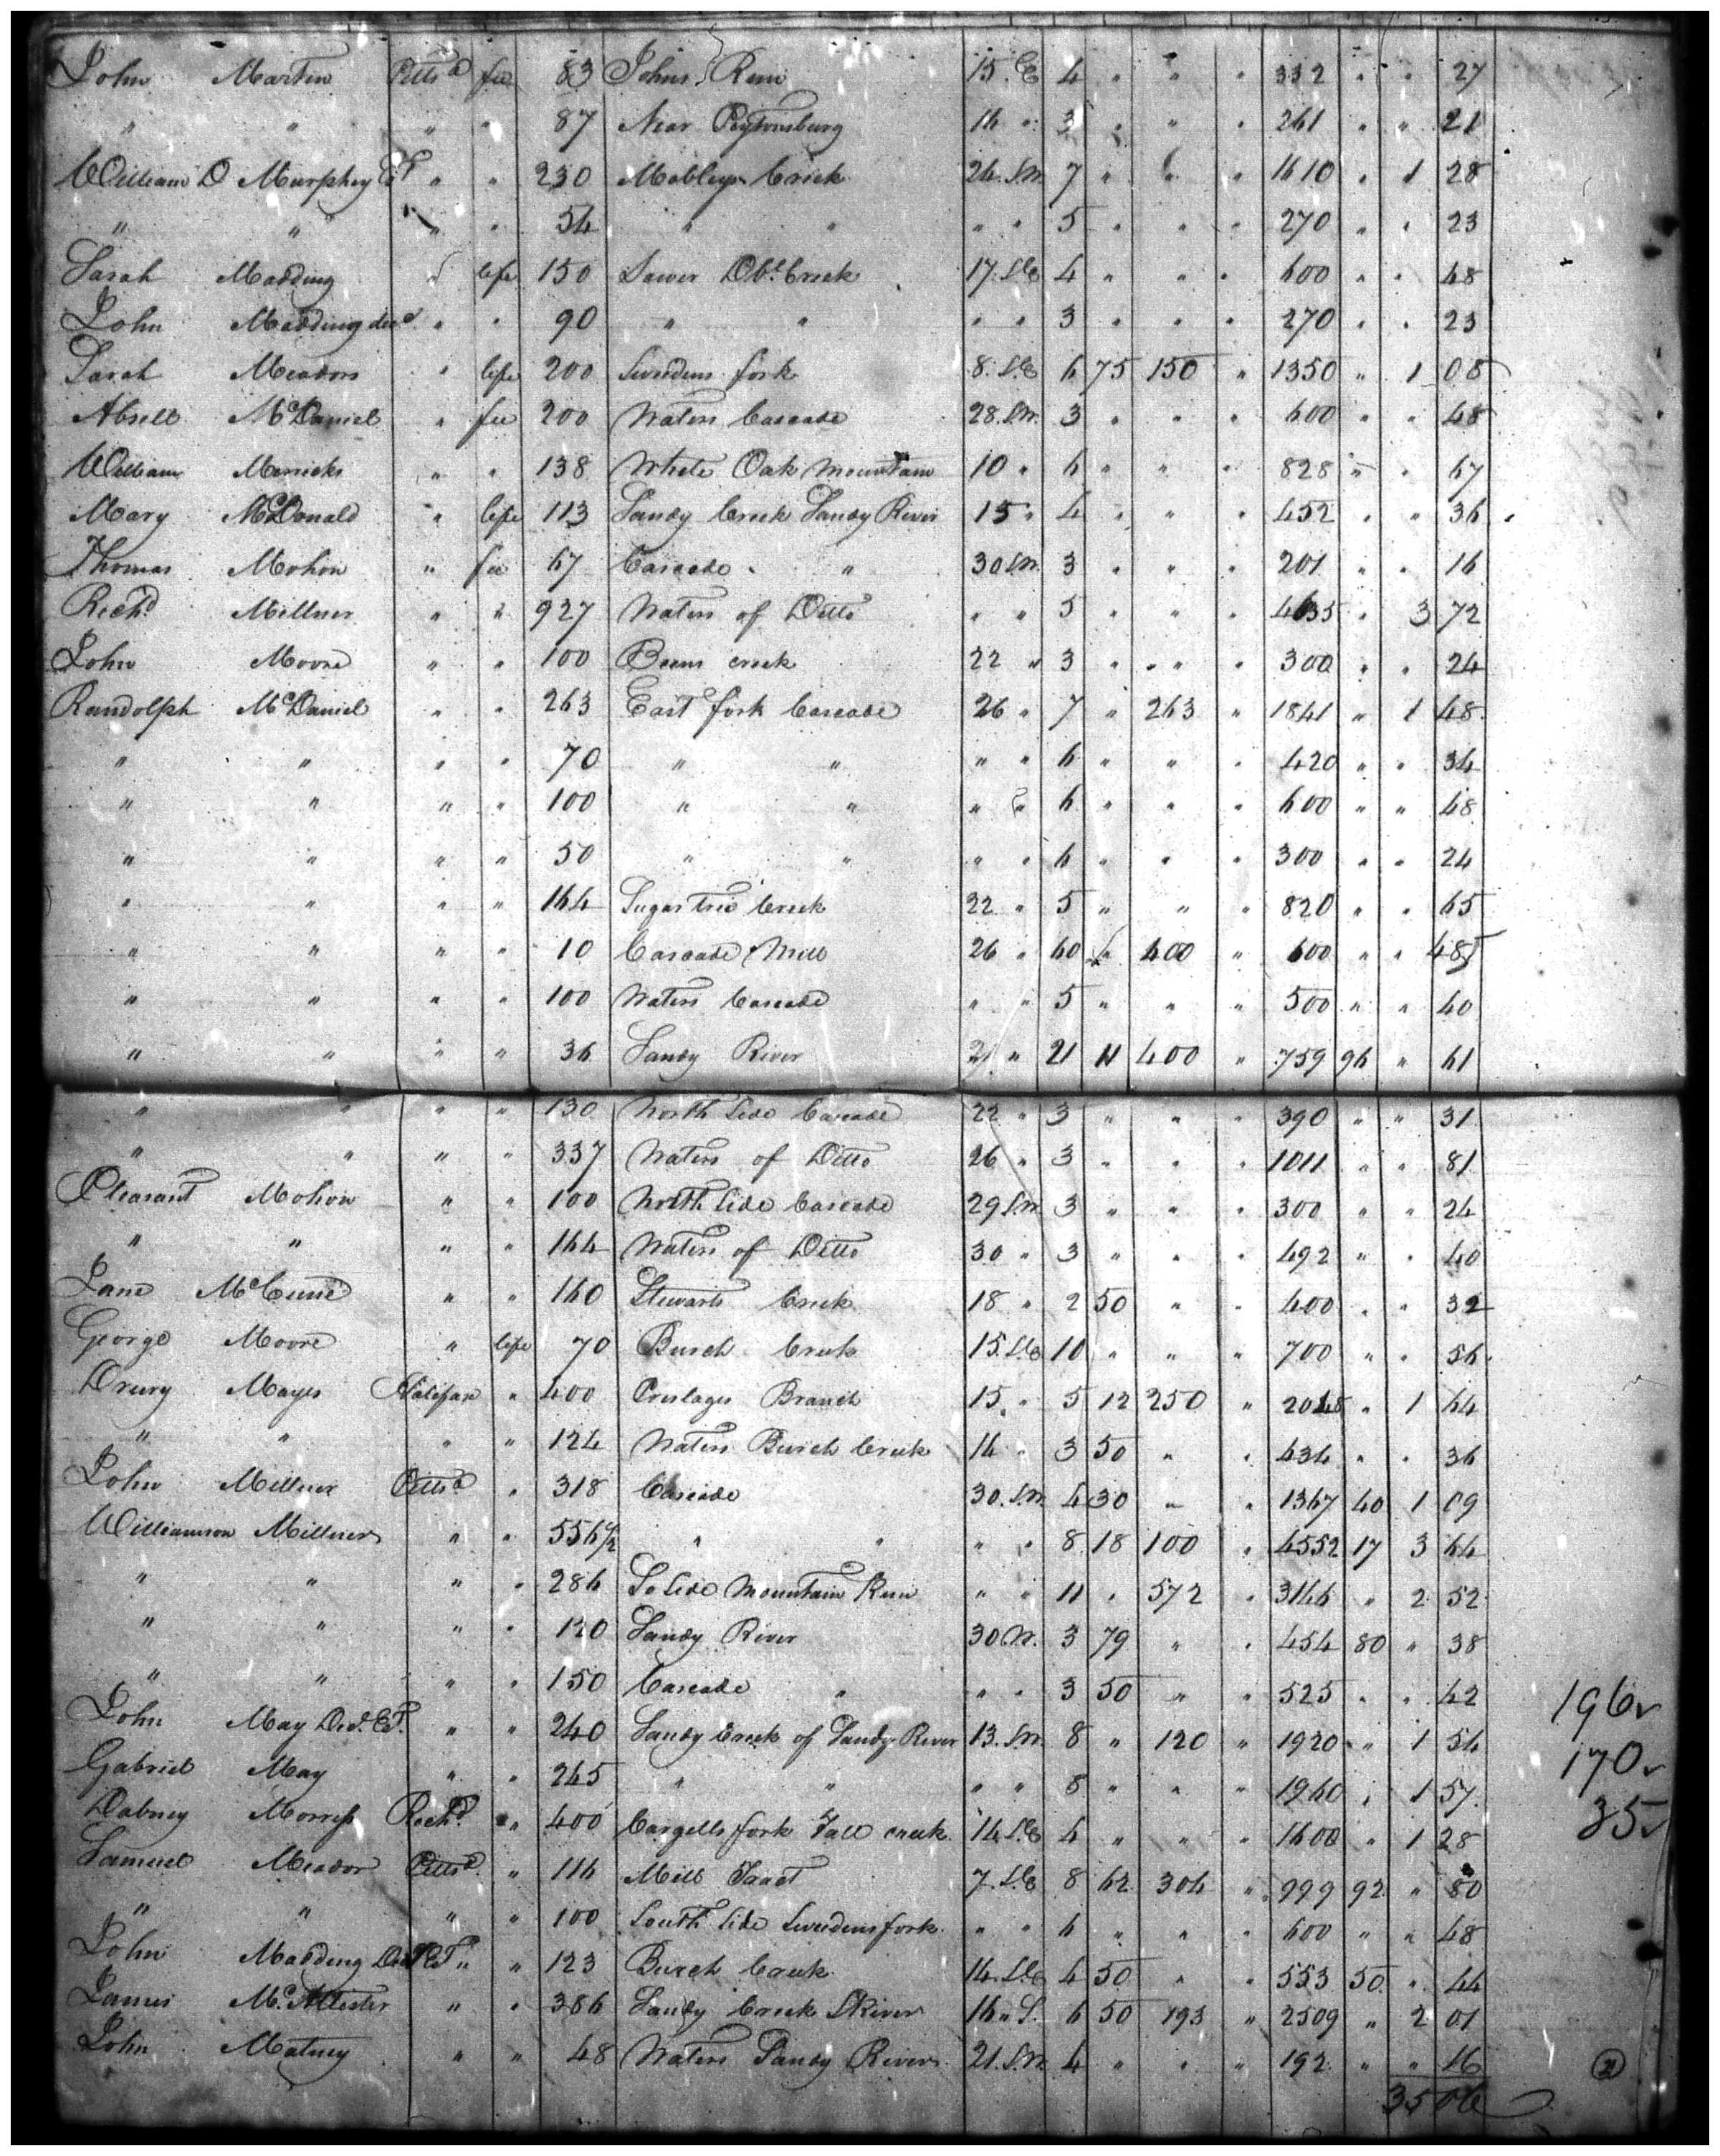 John Martin Pitts^a fee 83 Johns Run 15. E 4 " " " 332 " " 27
" " " " 87 Near Peytonsburg 16 " 3 " " " 261 " " 21
William D Murphey Es^t " " 230 Mobleys Creek 24. S.W. 7 " " " 1610 " 1 28
" " " " 54 " " " " 5 " " " 270 " " 23
Sarah Madding " life 150 Lower Db^l. Creek 17. S.E 4 " " " 600 " " 48
John Madding dec^d " " 90 " " " " 3 " " " 270 " " 23
Sarah Meadors " life 200 Sweedens fork 8. S.E 6 75 150 " 1350 " 1 08
Absell McDaniel " fee 200 Waters Cascade 28. S.W. 3 " " " 600 " " 48
William Merricks " " 138 White Oak Mountain 10 " 6 " " " 828 " " 67
Mary McDonald " life 113 Sandy Creek Sandy River 15 " 4 " " " 452 " " 36
Thomas Mohon " fee 67 Cascade " 30 S.W. 3 " " " 201 " " 16
Rich^d Millner " " 927 Waters of Ditto " " 5 " " " 4635 " 3 72
John Moore " " 100 Beens creek 22 " 3 " " " 300 " " 24
Randolph McDaniel " " 263 East fork Cascade 26 " 7 " 263 " 1841 " 1 48
" " " " 70 " " " " 6 " " " 420 " " 34
" " " " 100 " " " " 6 " " " 600 " " 48
" " " " 50 " " " " 6 " " " 300 " " 24
" " " " 164 Sugar tree Creek 22 " 5 " " " 820 " " 65
" " " " 10 Cascade Mill 26 " 60 " 400 " 600 " " 48
" " " " 100 Waters Cascade " " 5 " " " 500 " " 40
" " " " 36 Sandy River 21 " 21 11 400 " 759 96 " 61
" " " " 130 North Side Cascade 22 " 3 " " " 390 " " 31
" " " " 337 Waters of Ditto 26 " 3 " " " 1011 " " 81
Pleasant Mohon " " 100 North Side Cascade 29 S.W. 3 " " " 300 " " 24
" " " " 164 Waters of Ditto 30 " 3 " " " 492 " " 40
Jane " " 160 Stewarts Creek 18 " 2 50 " " 400 " " 32
George Moore " life 70 Burch Creek 15. S.E 10 " " " 700 " " 56
Drury Mayes Halifax " 400 Branch 15. " 5 12 250 " 2048 " 1 64
" " " " 124 Waters Burch Creek 14 " 3 50 " " 434 " " 36
John Millner Pitts^a " 318 Cascade 30. S.W. 4 30 " " 1367 40 1 09
Williamson Millner " " 556 1/2 " " " " 8 18 100 " 4552 17 3 64
" " " " 286 So Side Mountain Run " " 11 " 572 " 3146 " 2 52
" " " " 120 Sandy River 30 W. 3 79 " " 454 80 " 38
" " " " 150 Cascade " " " 3 50 " " 525 " " 42
196
John May Decd. Est. " " 240 Sandy Creek of Sandy River 13. S.W. 8 " 120 " 1920 " 1 54
170
Gabriel May " " 245 " " " " 8 " " " 1960 " 1 57
35
Dabney Morress Rich^d. " 400 Cargells fork Fall creek 14. S.E 4 " " " 1600 " 1 28
Samuel Meador Pitts^a. " 116 Mill Tract 7. S.E 8 62 304 " 999 92 " 80
" " " " 100 South Side Sweedens fork " " 6 " " " 600 " " 48
John Madding Decd Est " " 123 Burch Creek 14. S.E 4 50 " " 553 50 " 44
James McAllester " " 386 Sandy Creek S River 16 " S. 6 50 193 " 2509 " 2 01
John Matney " " 48 Waters Sandy River 21. S.W. 4 " " " 192 " " 16
21
3506